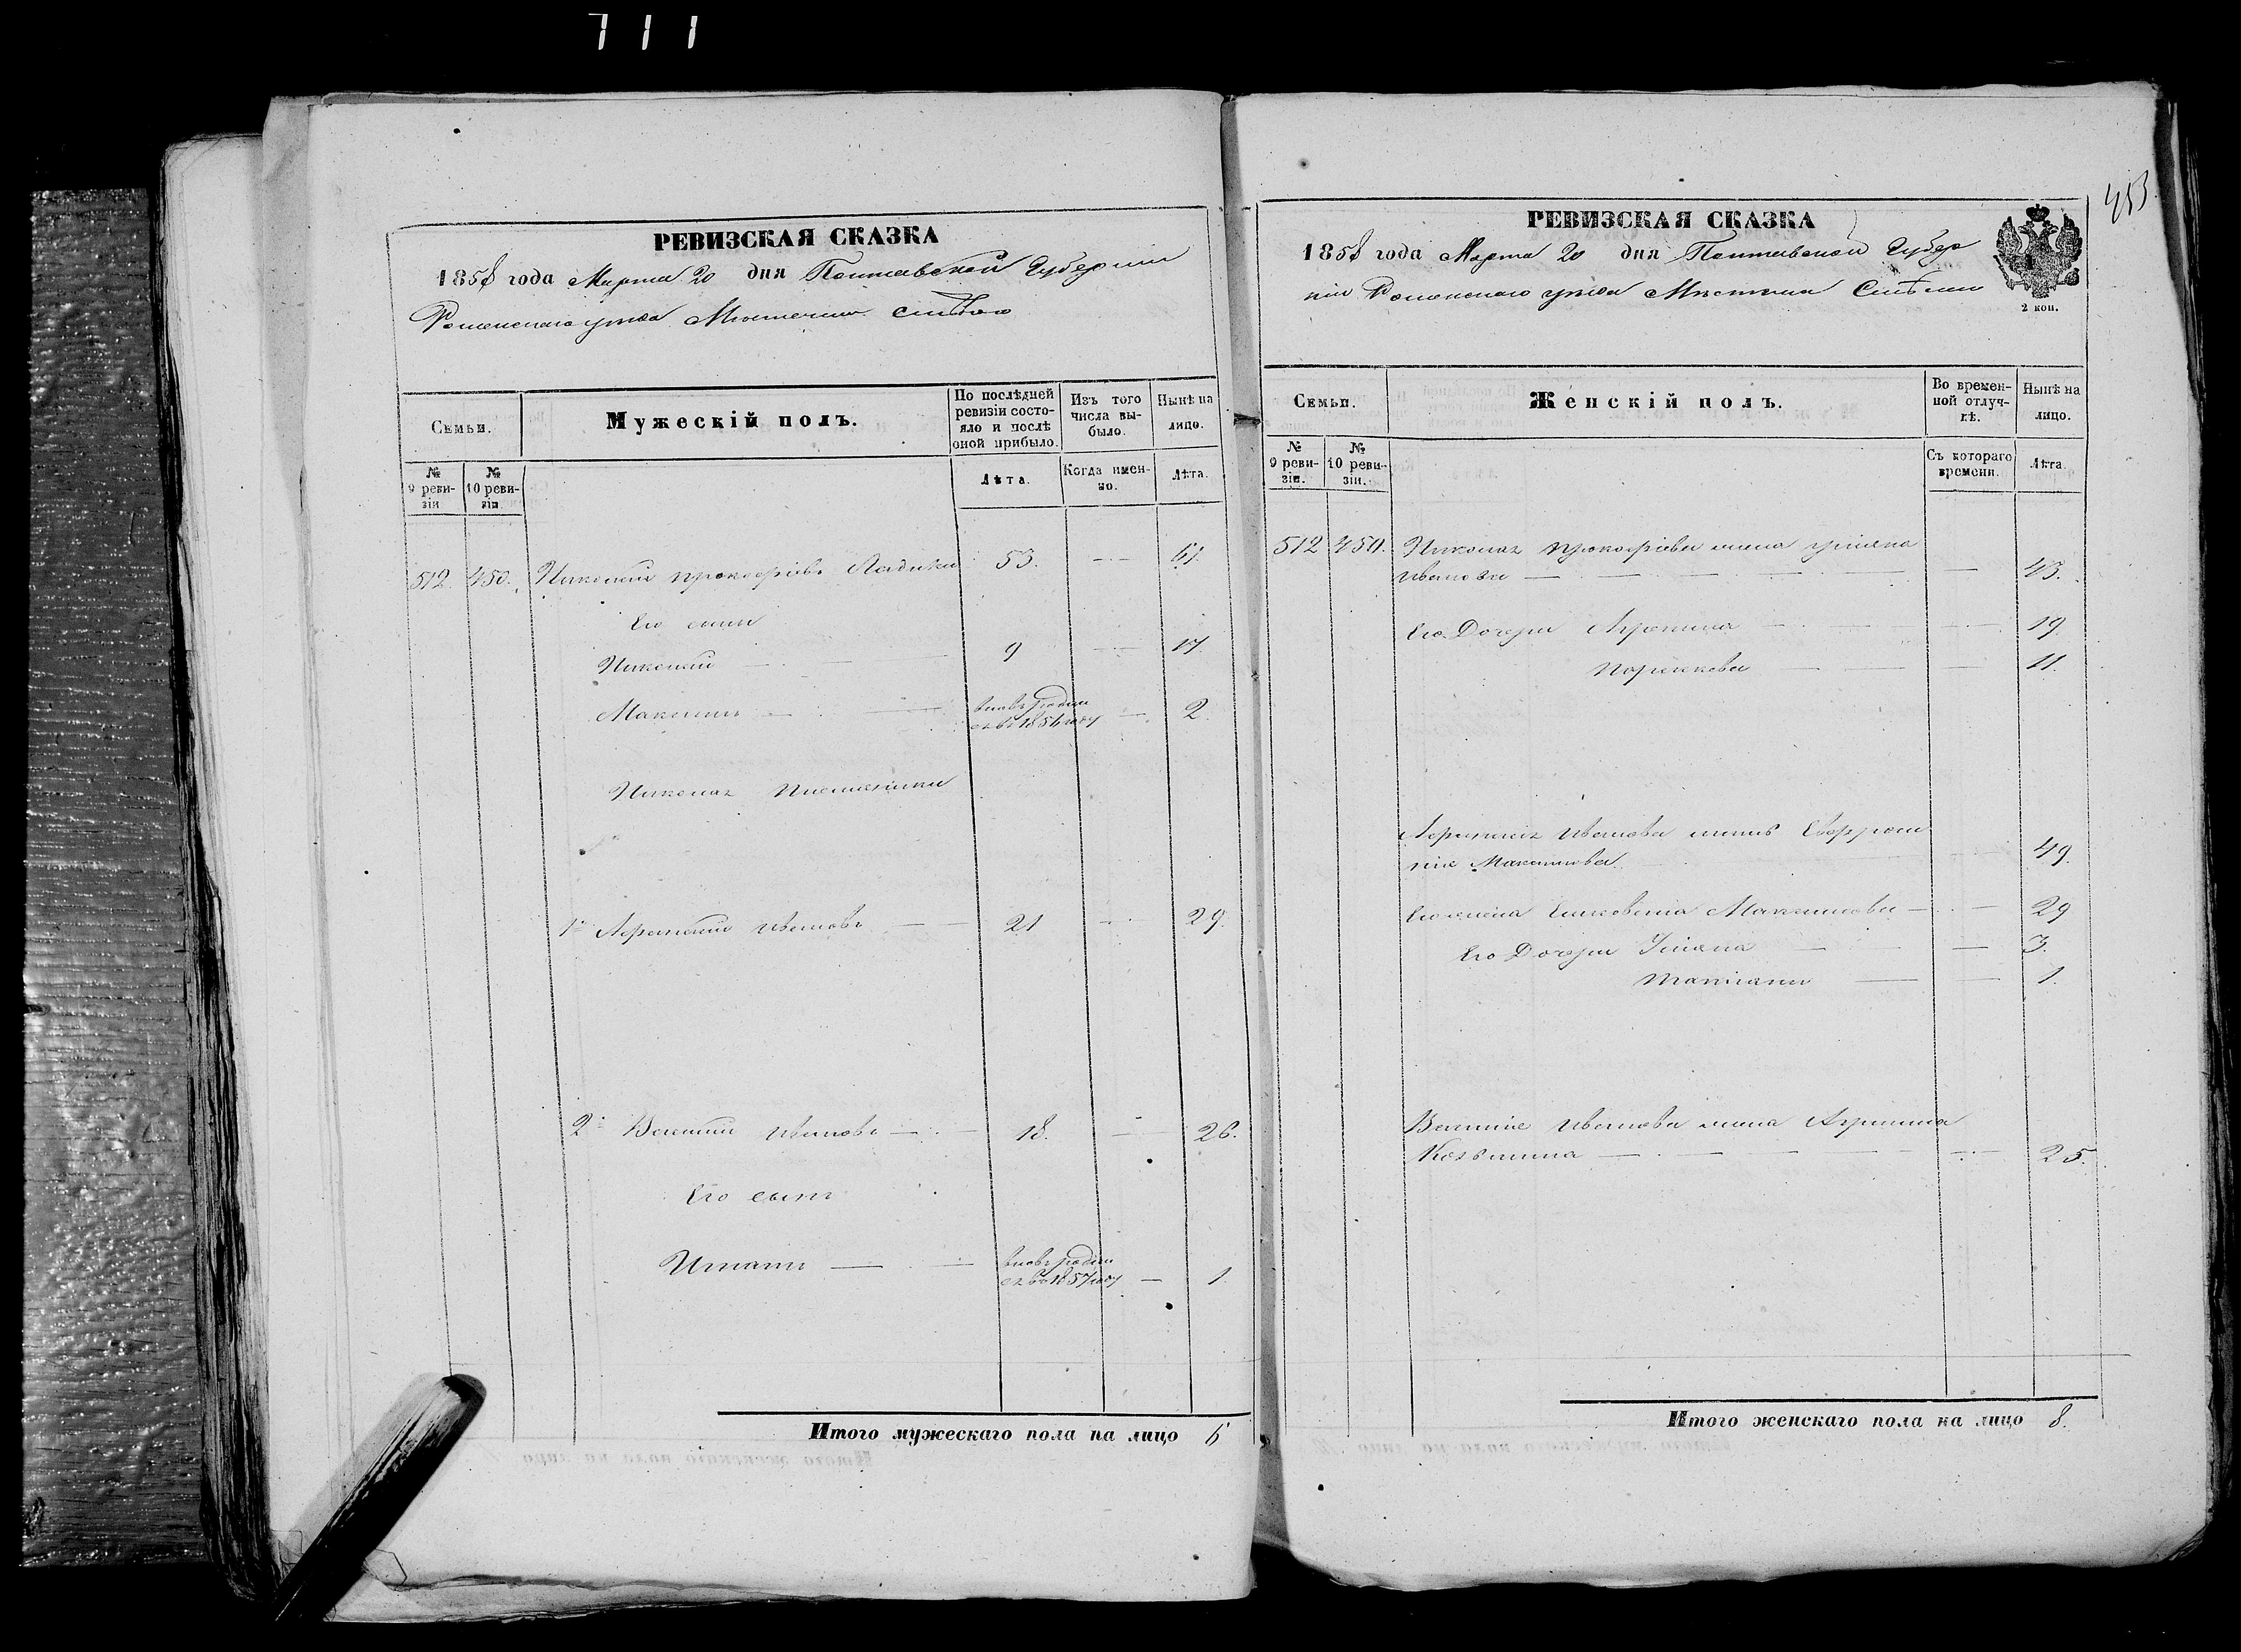 711
РЕВИЗСКАЯ СКАЗКА
1858 года Марта 20 дня Полтавской Губернии
Роменскаго уезда Местечка Смелаго
Семьи.
Мужескій полъ.
По послѣдней ревизіи состояло и послѣ оной прибыло.
Изъ того числа выбыло.
Нынѣ на лицо.
№ 9 ревизіи
№ 10 ревизіи.
Лѣта.
Когда именно.
Лѣта.
512. 450. Николай Прокофіевъ 53. 61.
Его сыны
Николай 9 17.
Максимъ вновь родился въ 1856 году 2.
Николая племянники
1й Ивановъ 21 29.
2й Ивановъ 18. 26.
Его сынъ
вновь родился въ 1857 году 1.
Итого мужескаго пола на лицо 6
453
РЕВИЗСКАЯ СКАЗКА
1858 года Марта 20 дня Полтавской Губер
ніи Роменскаго уезда Местечка
2 коп.
Семьи.
Женскій полъ.
Во временной отлучкѣ.
Нынѣ на лицо.
№ 9 ревизіи.
№ 10 ревизіи.
Съ котораго времени.
Лѣта.
512 450. Николая Прокофіева жена Уліяна
Иванова 43.
Его Дочери 19.
11.
Иванова
Максимова 49.
Его жена Максимова 29
Его Дочери Уліяна 3.
1.
Иванова жена
25.
Итого женскаго пола на лицо 8.